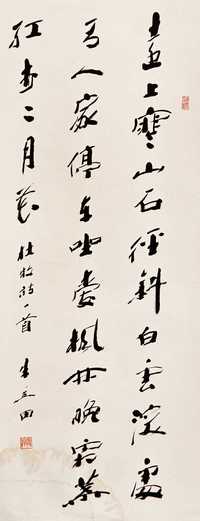 遠上寒山石徑斜白雲深處
有人家停車坐愛楓林晚霜葉
紅於二月花 杜牧詩一首